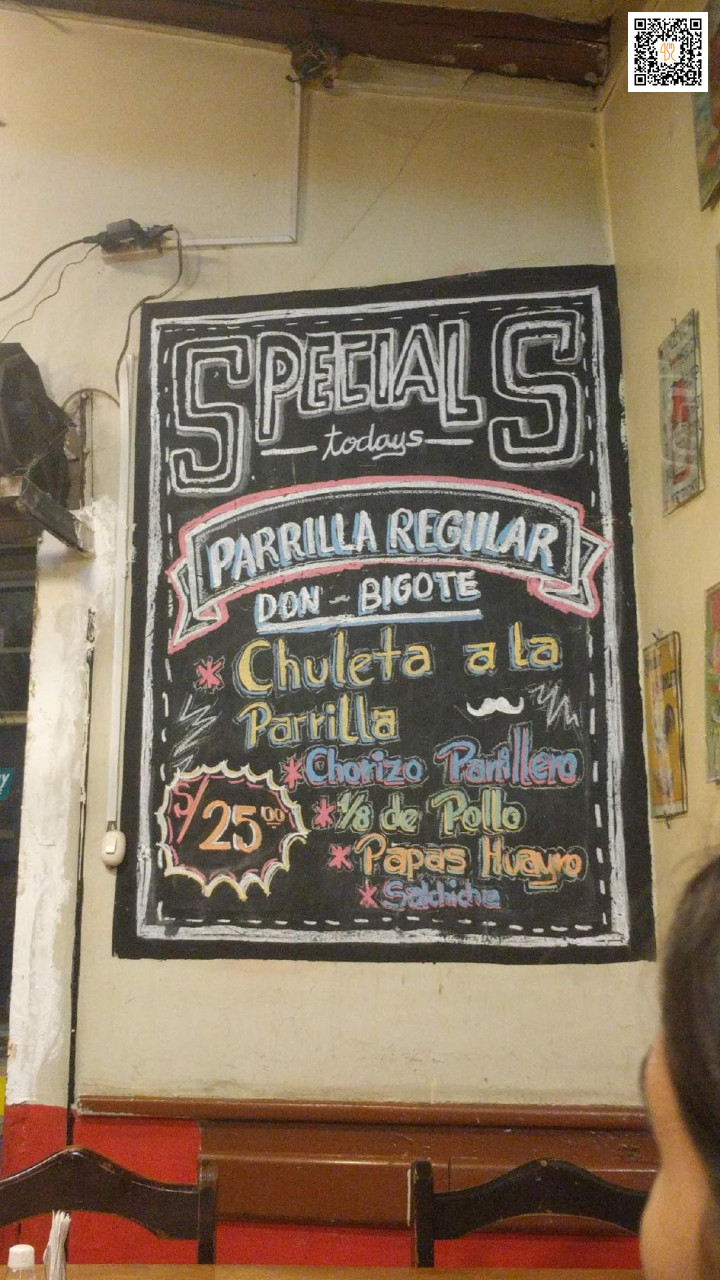 SPECIALS
todays
PARRILLA REGULAR
DON - BIGOTE
* Chuleta a la
Parrilla
* Chorizo Parrillero
S/25.00
* 1/8 de Pollo
* Papas Huayro
* Salchicha